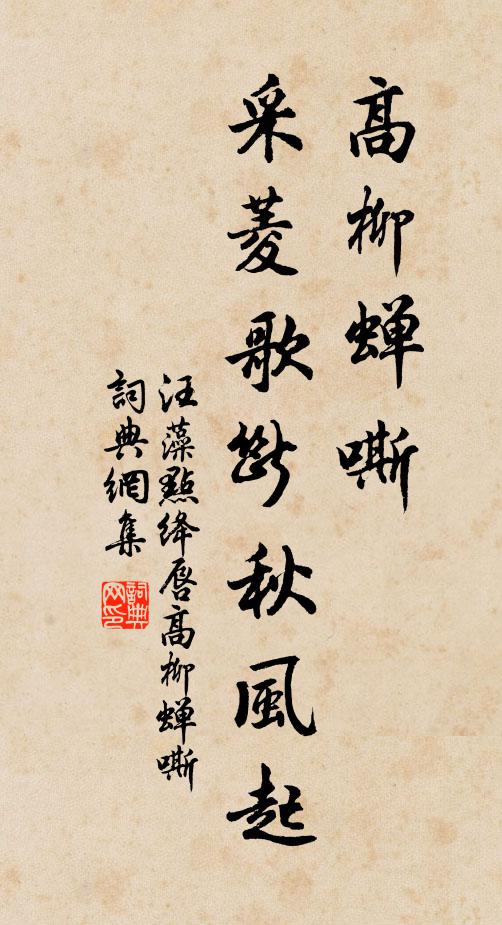 高柳蝉嘶
采菱歌斷秋風起
汪藻點絳唇高柳蝉嘶
詞典網集
詞典
网印